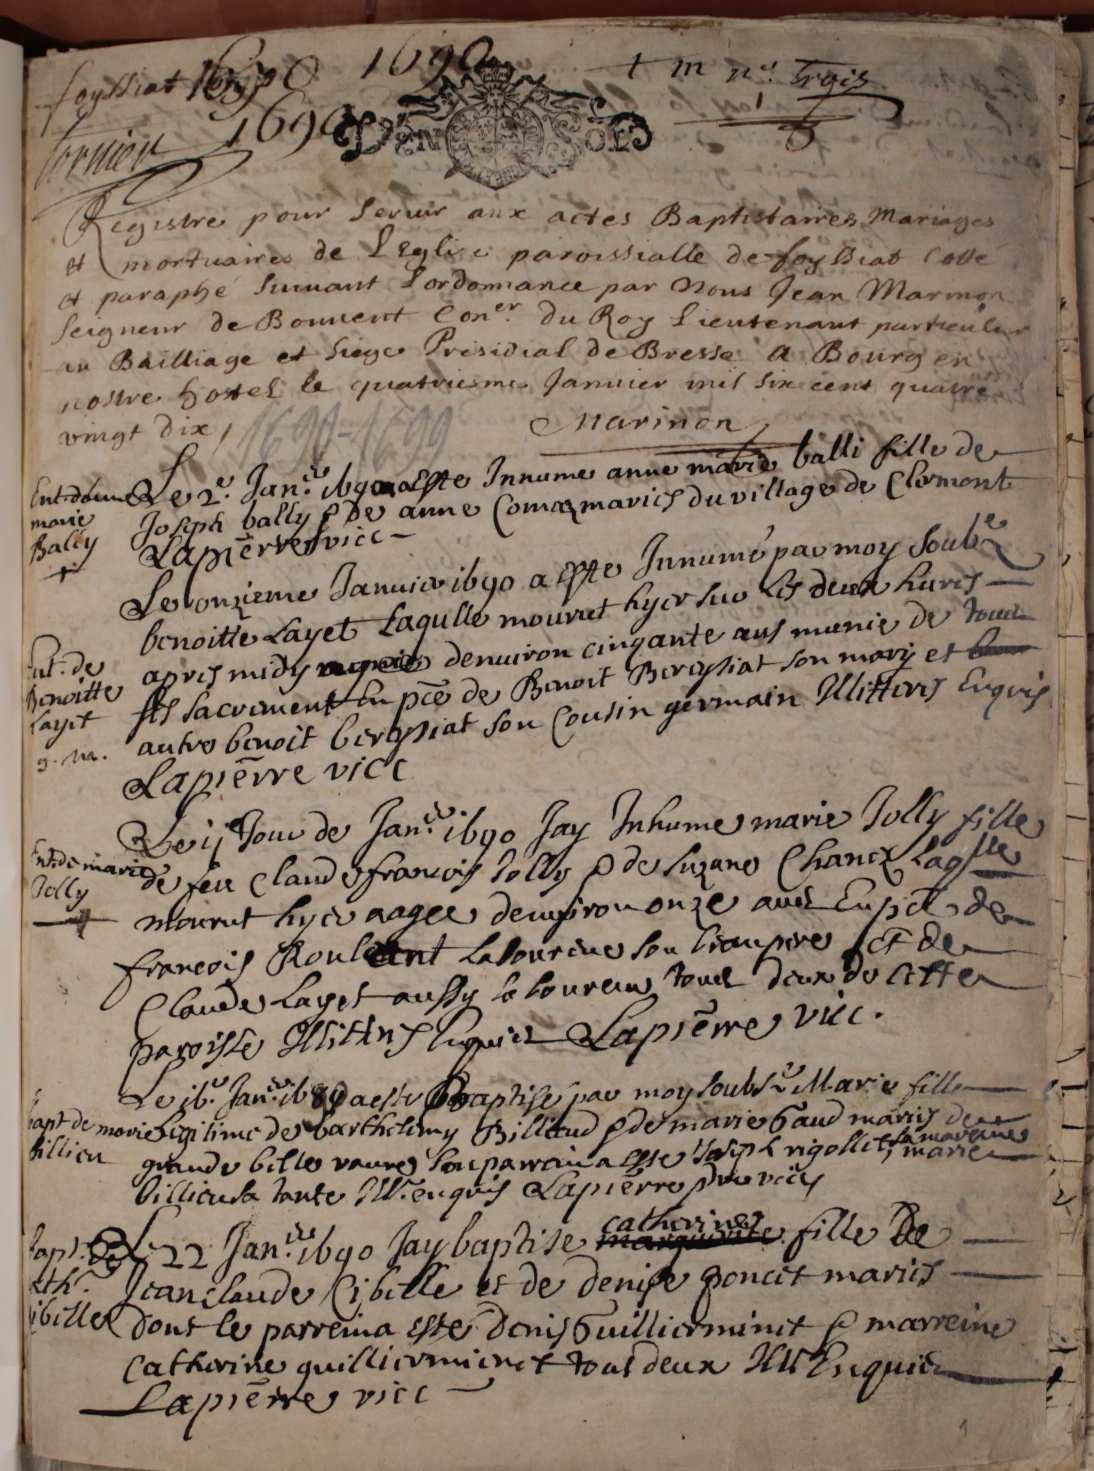 foyssiat 1690 1690
1690
DEN SOL
Registre pour servir aux actes Baptistaires Mariages
et mortuaires de L'Eglise paroissialle de foyssiat Cotté
et paraphé suivant l'ordonnance par Nous Jean Marinon
Seigneur de Bonvent Con.er du Roy Lieutenant particulier
au Bailliage et siege Presidial de Bresse a Bourg en
nostre hostel le quatriesme Janvier mil six cent quatre
vingt dix
Marinon
1690-1699
Ent. d'anne
marie
Bally
Le 2.e Jan.er 1690 a este Innumé anne marie balli fille de
Joseph bally & de anne Comaz maries du village de Clermont
Lapierre vicc
Le onzieme Janvier 1690 a este Innumé par moy soub.e
Ent. de
Benoitte
Layet
g. m.
benoitte Layet Laqulle mourut hyer sur les deux hures
apres midy denviron cinqante ans munie de tous
ses sacrement En pce de Benoit Bereysiat son mary et
autre benoit bereysiat son Cousin germain Illitteres Enquis
Lapierre vicc
Le ij Jour de Jan.er 1690 Jay Inhumé marie Jolly fille
Ent. de marie
Jolly
de feu Claude francois Jolly & de suzane Chanez Laqlle
mourut hyer aagee denviron onze ans En pce de
francois Roulent laboureur son beaupere et de
Claude Layet aussy laboureur tous deux de cette
paroisse Illitters Enquis Lapierre vicc.
Le 16.e Jan.er 1690 a este Baptisé par moy soubs.é Marie fille
bapt. de marie
Billieu
legitime de barthelemy Billioud & de marie Gaud maries de
grande bille vavre son parrain a esté Joseph rigollet, sa maraine marie
billieu sa tante Ill. enquis Lapierre vicc
bapt. de
Cath.
Cibille
Le 22 Jan.er 1690 Jay baptisé catherine fille de
Jean claude Cibille et de denise poncet maries
dont le parrein a esté denis Guillierminet & marreine
Catherine guillierminet tous deux Ill Enquis
Lapierre vicc
1